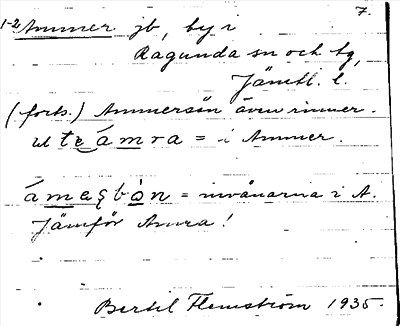 1-2 Ammer jb, by i 7.
Ragunda sn och tg,
Jämtl. l.
(forts.) Ammersån även rinner.
ut te ámra = i Ammer.
ámasbòn = invånarna i A.
Jämför Amra!
Bertil Flemström 1935.